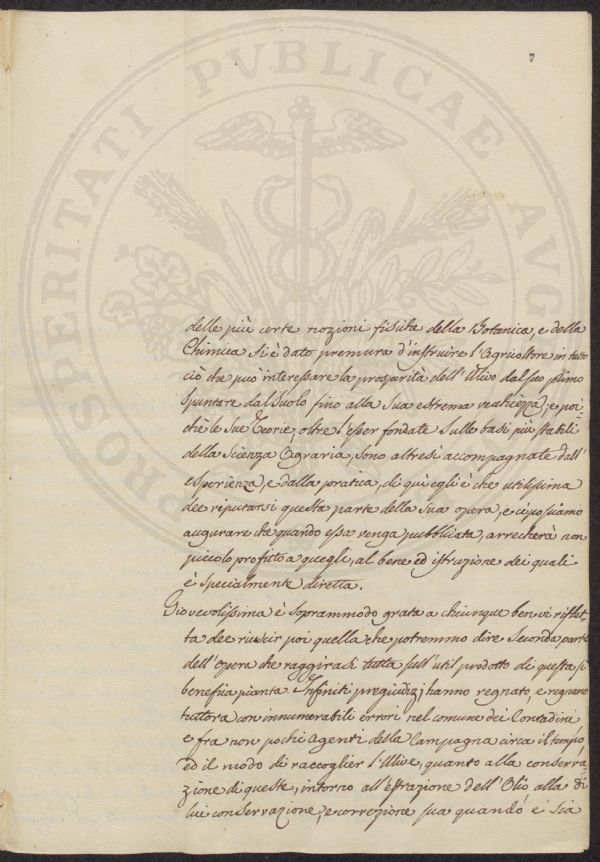 7
PROSPERITATI PVBLICAE AVG
delle più certe nozioni fisiche della Botanica, e della
Chimica si è dato premura d'instruire l'Agricoltore in tutto
ciò che può interessare la prosperità dell'Ulivo dal suo primo
spuntare dal Suolo fino alla sua estrema vecchiezza; e poi
chè le sue Teorie, oltre l'esser fondate sulle basi più stabili
della Scienza Agraria, sono altresì accompagnate dall'
esperienza, e dalla pratica, di quì egli è che utilissima
dee riputarsi questa parte della sua opera, e ci possiamo
augurare che quando essa venga pubblicata, arrecherà non
piccolo profitto a quegli, al bene ed istruzione dei quali
è specialmente diretta.
Giovevolissima è soprammodo grata a chiunque ben vi riflet
ta dee riuscir poi quella che potremmo dire Seconda parte
dell'Opera che raggirasi tutta sull'util prodotto di questa sì
benefica pianta. Infiniti pregiudizj hanno regnato, e regnano
tuttora con innumerabili errori nel comune dei Contadini
e fra non pochi Agenti della Campagna circa il tempo,
ed il modo di raccoglier l'Ulive, quanto alla conserva
zione di queste, intorno all'estrazione dell'Olio alla di
lui conservazione, e correzione sua quando è sia